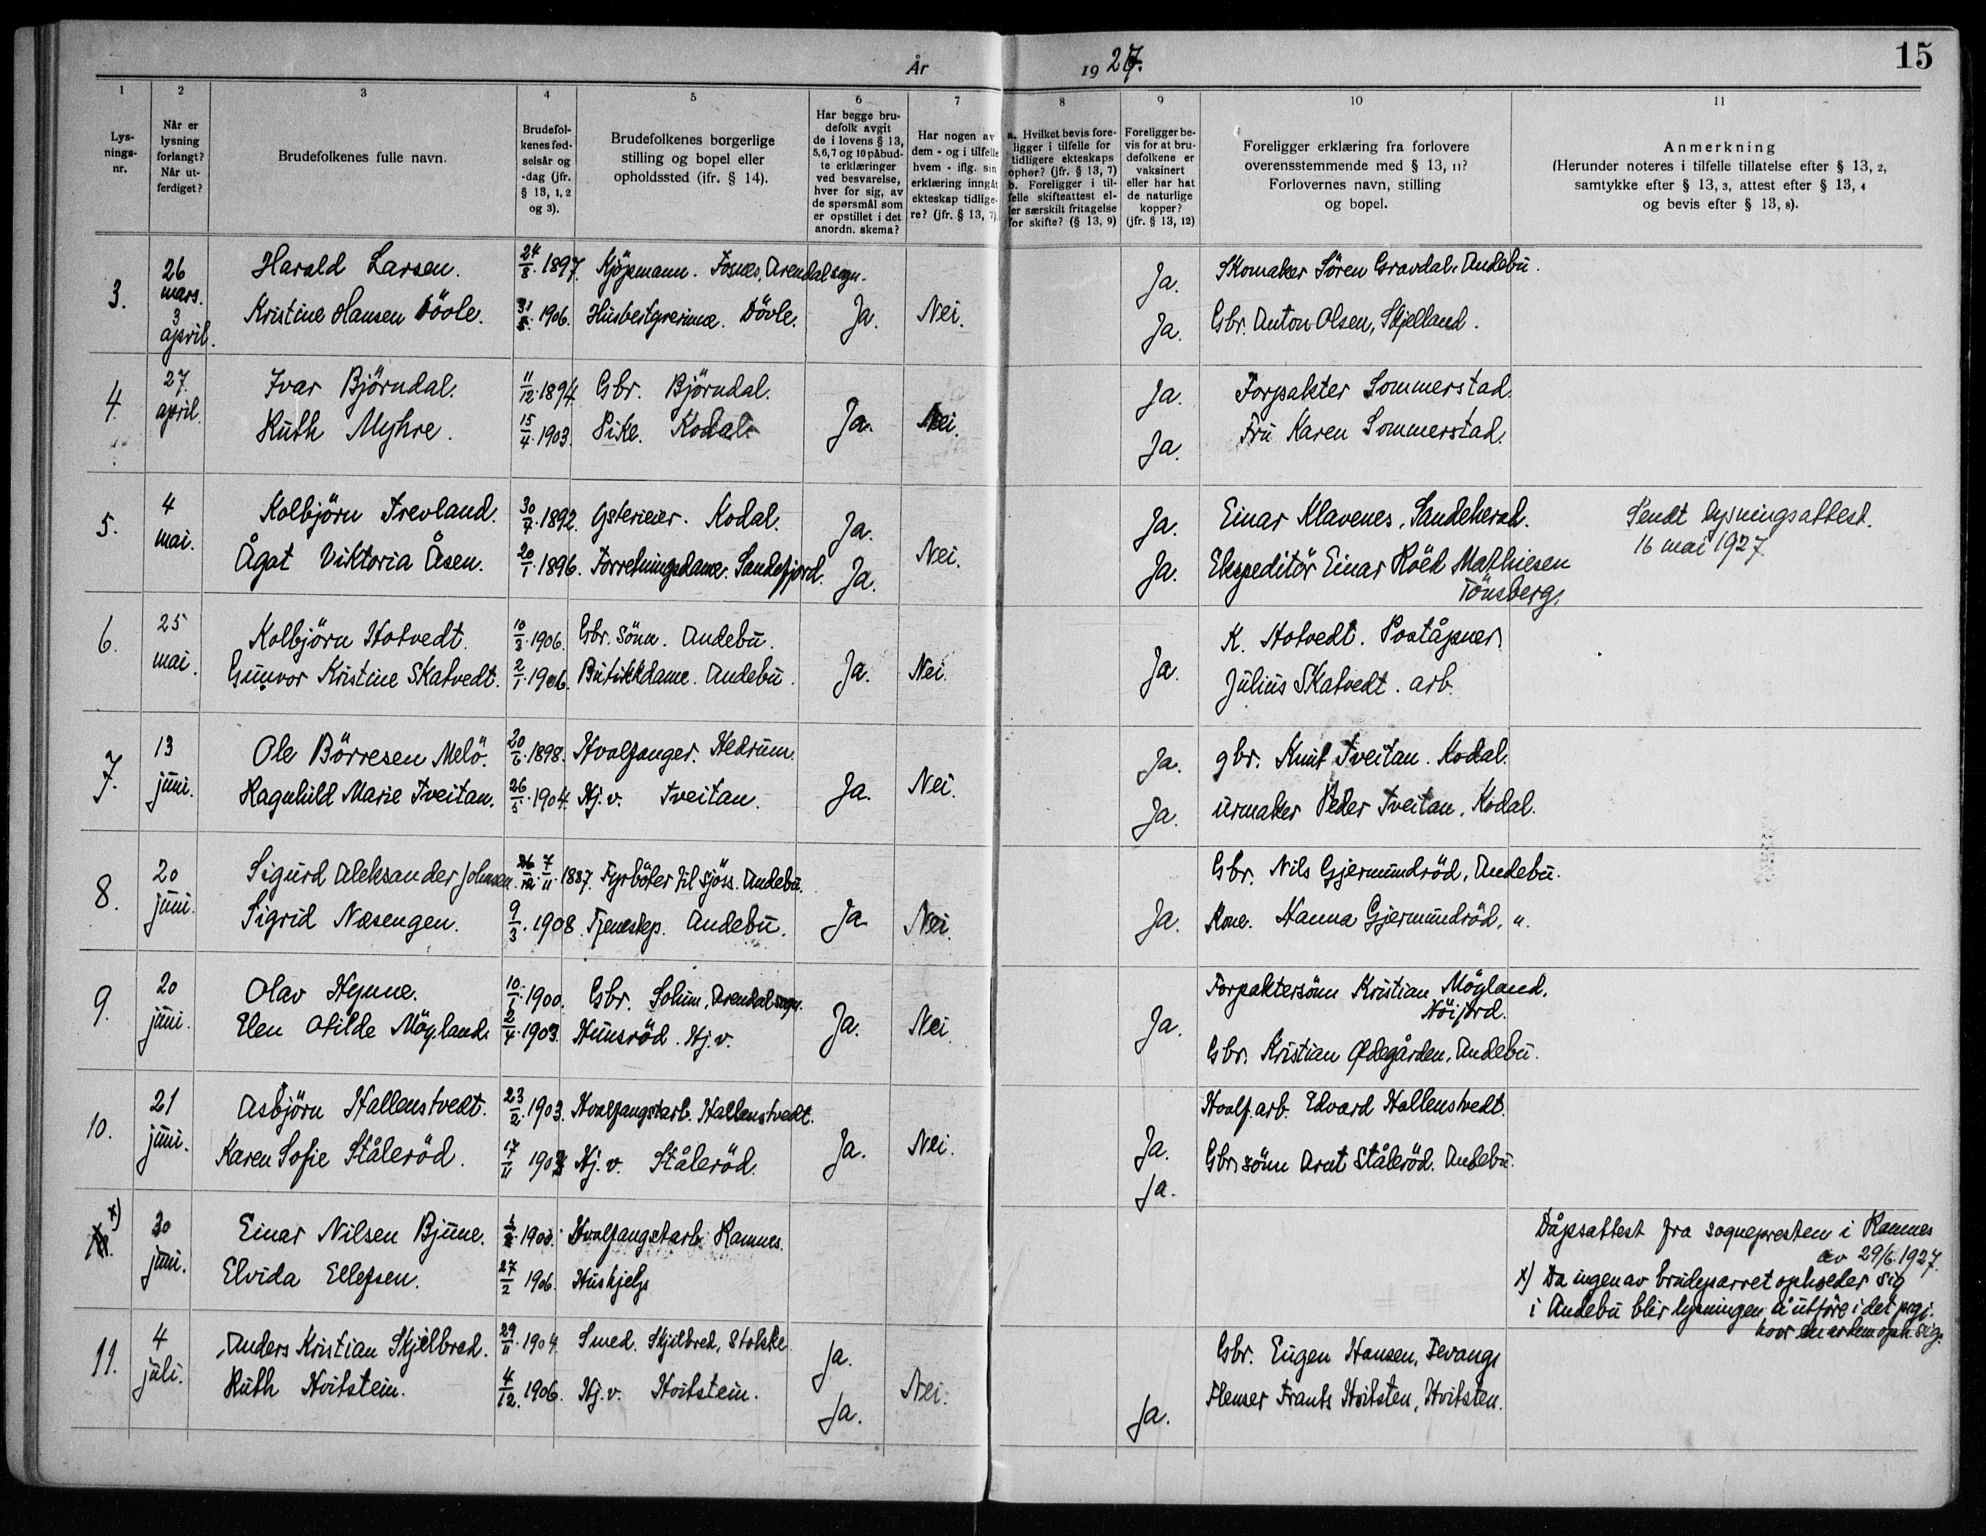 År 1927. 15
1 2 3 4 5 6 7 8 9 10 11
Lysnings-nr.
Når er lysning forlangt? Når utferdiget?
Brudefolkenes fulle navn.
Brudefolkenes fødselsår og -dag (jfr. § 13, 1, 2 og 3).
Brudefolkenes borgerlige stilling og bopel eller opholdssted (jfr. § 14).
Har begge brudefolk avgit de i lovens § 13, 5, 6, 7 og 10 påbudte erklæringer ved besvarelse, hver for sig, av de spørsmål som er opstillet i det anordn. skema?
Har nogen av dem - og i tilfelle hvem - iflg. sin erklæring inngåt ekteskap tidligere? (jfr. § 13, 7)
a. Hvilket bevis foreligger i tilfelle for tidligere ekteskaps ophør? (jfr. § 13, 7)
b. Foreligger i tilfelle skifteattest eller særskilt fritagelse for skifte? (§ 13, 9)
Foreligger bevis for at brudefolkene er vaksinert eller har hat de naturlige kopper? (jfr. § 13, 12)
Foreligger erklæring fra forlovere overensstemmende med § 13, 11? Forlovernes navn, stilling og bopel.
Anmerkning (Herunder noteres i tilfelle tillatelse efter § 13, 2, samtykke efter § 13, 3, attest efter § 13, 4 og bevis efter § 13, 8).
3. 26 mars. 3 april.
Harald Larsen. 24/8. 1897. Kjöpmann. Fosnes, Arendal sogn. Ja. Skomaker Sören Gravdal, Andebu.
Kristine Hansen Dövle. 31/8. 1906. Husbestyrerinne. Dövle. Ja. Nei. Ja. Gbr. Anton Olsen, Skjelland.
4. 27. april.
Ivar Björndal. 11/12. 1894. Gbr. Björndal. Ja. Forpakter Sommerstad.
Ruth Myhre. 15/4. 1903. Pike. Kodal. Ja. Nei. Ja. Fru Karen Sommerstad.
5. 4 mai.
Kolbjörn Trevland. 30/7. 1892. Gsteieier. Kodal. Ja. Ja. Einar Klavenes, Sandeherad. Sendt lysningsattest.
16 mai 1927.
Ågot Viktoria Åsen. 20/1. 1896. Forretningsdame. Sandefjord. Ja. Nei. Ja. Ekspeditör Einar Röed Mathiesen
Tönsberg.
6. 25 mai.
Kolbjörn Hotvedt. 10/3. 1906. Gbr. sönn. Andebu. K. Hotvedt. Poståpner.
Gunvor Kristine Skatvedt. 2/1. 1906. Butikkdame. Andebu. Ja. Nei. Ja. Julius Skatvedt. arb.
7. 13 juni.
Ole Börresen Melö. 20/6. 1898. Hvalfanger. Hedrum. Ja. gbr. Knut Tveitan. Kodal.
Ragnhild Marie Tveitan. 26/5. 1904. Hj.v. Tveitan. Ja. Nei. Ja. urmaker Peder Tveitan, Kodal.
8. 20 juni.
Sigurd Aleksander Johnsen. 7/11. 1887. Fyrböter til sjöss. Andebu. Gbr. Nils Gjermundröd, Andebu.
Sigrid Næsengen. 9/3. 1908. Tjenestep. Andebu. Ja. Nei. Ja. Kone. Hanna Gjermundröd, "
9. 20 juni.
Olav Hynne. 10/1. 1900. Gbr. Solum, Arendal sogn. Forpaktersönn Kristian Möyland.
Höijord.
Elen Otilde Möyland. 2/4. 1903. Hunsröd. Hj.v. Ja. Nei. Ja. Gbr. Kristian Ødegården, Andebu.
10. 21 juni.
Asbjörn Hallenstvedt. 23/2. 1903. Hvalfangstarb. Hallenstvedt. Hvalf.arb. Edvard Hallenstvedt.
Karen Sofie Ståleröd. 17/11 Hj.v. Ståleröd. Ja. Nei. Ja. Gbr.sönn Arnt Stålröd. Andebu.
Ja.
x) 30 juni.
Einar Nilsen Bjune. 1900. Hvalfangstarb. Ramnes. Dåpsattest fra sognepresten i Ramnes
av 29/6 1927.
Elvida Ellefsen. 27/2 1906. Hushjelp x) Da ingen av brudeparret opholder sig
i Andebu blir lysningen å utföre i det pregj.
hvor en av dem oph. sig.
11. 4 juli.
Anders Kristian Skjelbred. 29/11. 1904. Smed. Skjelbred, Stokke. Ja. Gbr. Eugen Hansen, Tevang
Ruth Hvitstein. 4/12. 1906. Hj.v. Hvitstein. Ja. Nei. Ja. Flenser Frants Hvitsten, Hvitsten.